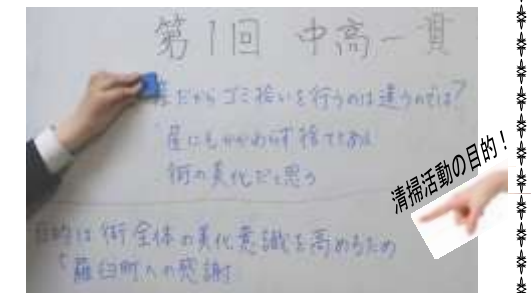 第1回 中高一貫
だからゴミ拾いを行うのは違うのでは?
街の美化だと思う
目的は街全体の美化意識を高めるため
羅臼町への感謝
清掃活動の目的!